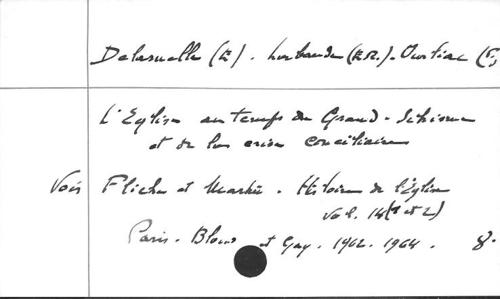 Delaruelle (E). Labande (E.R.). Ourliac (P)
L'Eglise au temps du Grand-Schisme
et de la crise conciliaire
Voir Fliche et Martin. Histoire de l'Eglise
Vol. 14 (1 et 2)
Paris. Bloud et Gay. 1962. 1964. 8.